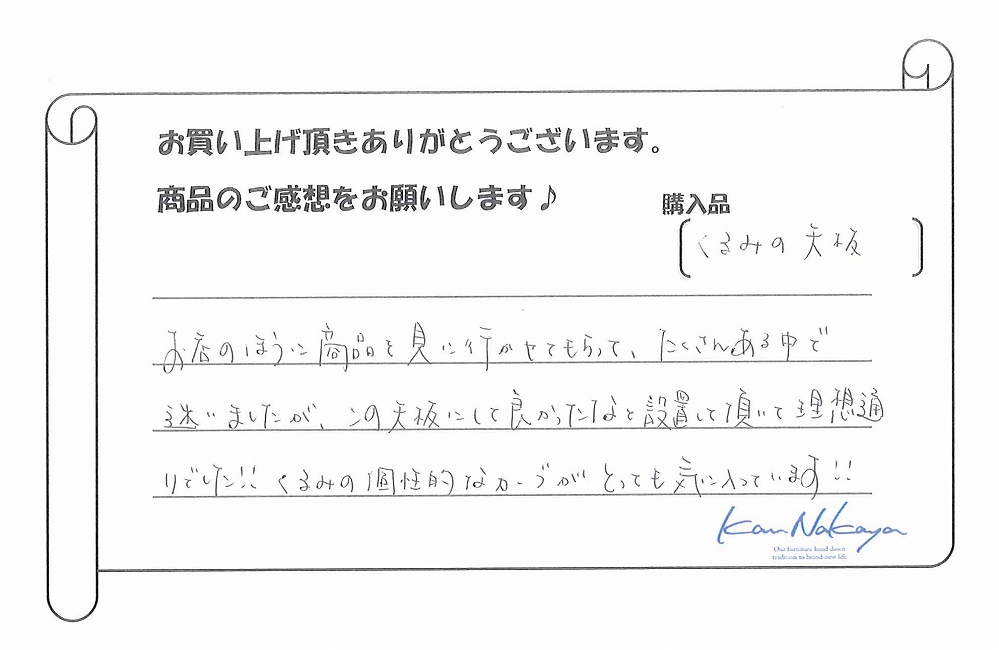 お買い上げ頂きありがとうございます。
商品のご感想をお願いします♪
購入品
くるみの天板
お店のほうに商品を見に行かせてもらって、たくさんある中で
迷いましたが、この天板にして良かったなと設置して頂いて理想通
りでした!! くるみの個性的なカーブがとっても気に入っています!!
Kan Nakaya
Our furniture hand down
tradition to brand-new life.